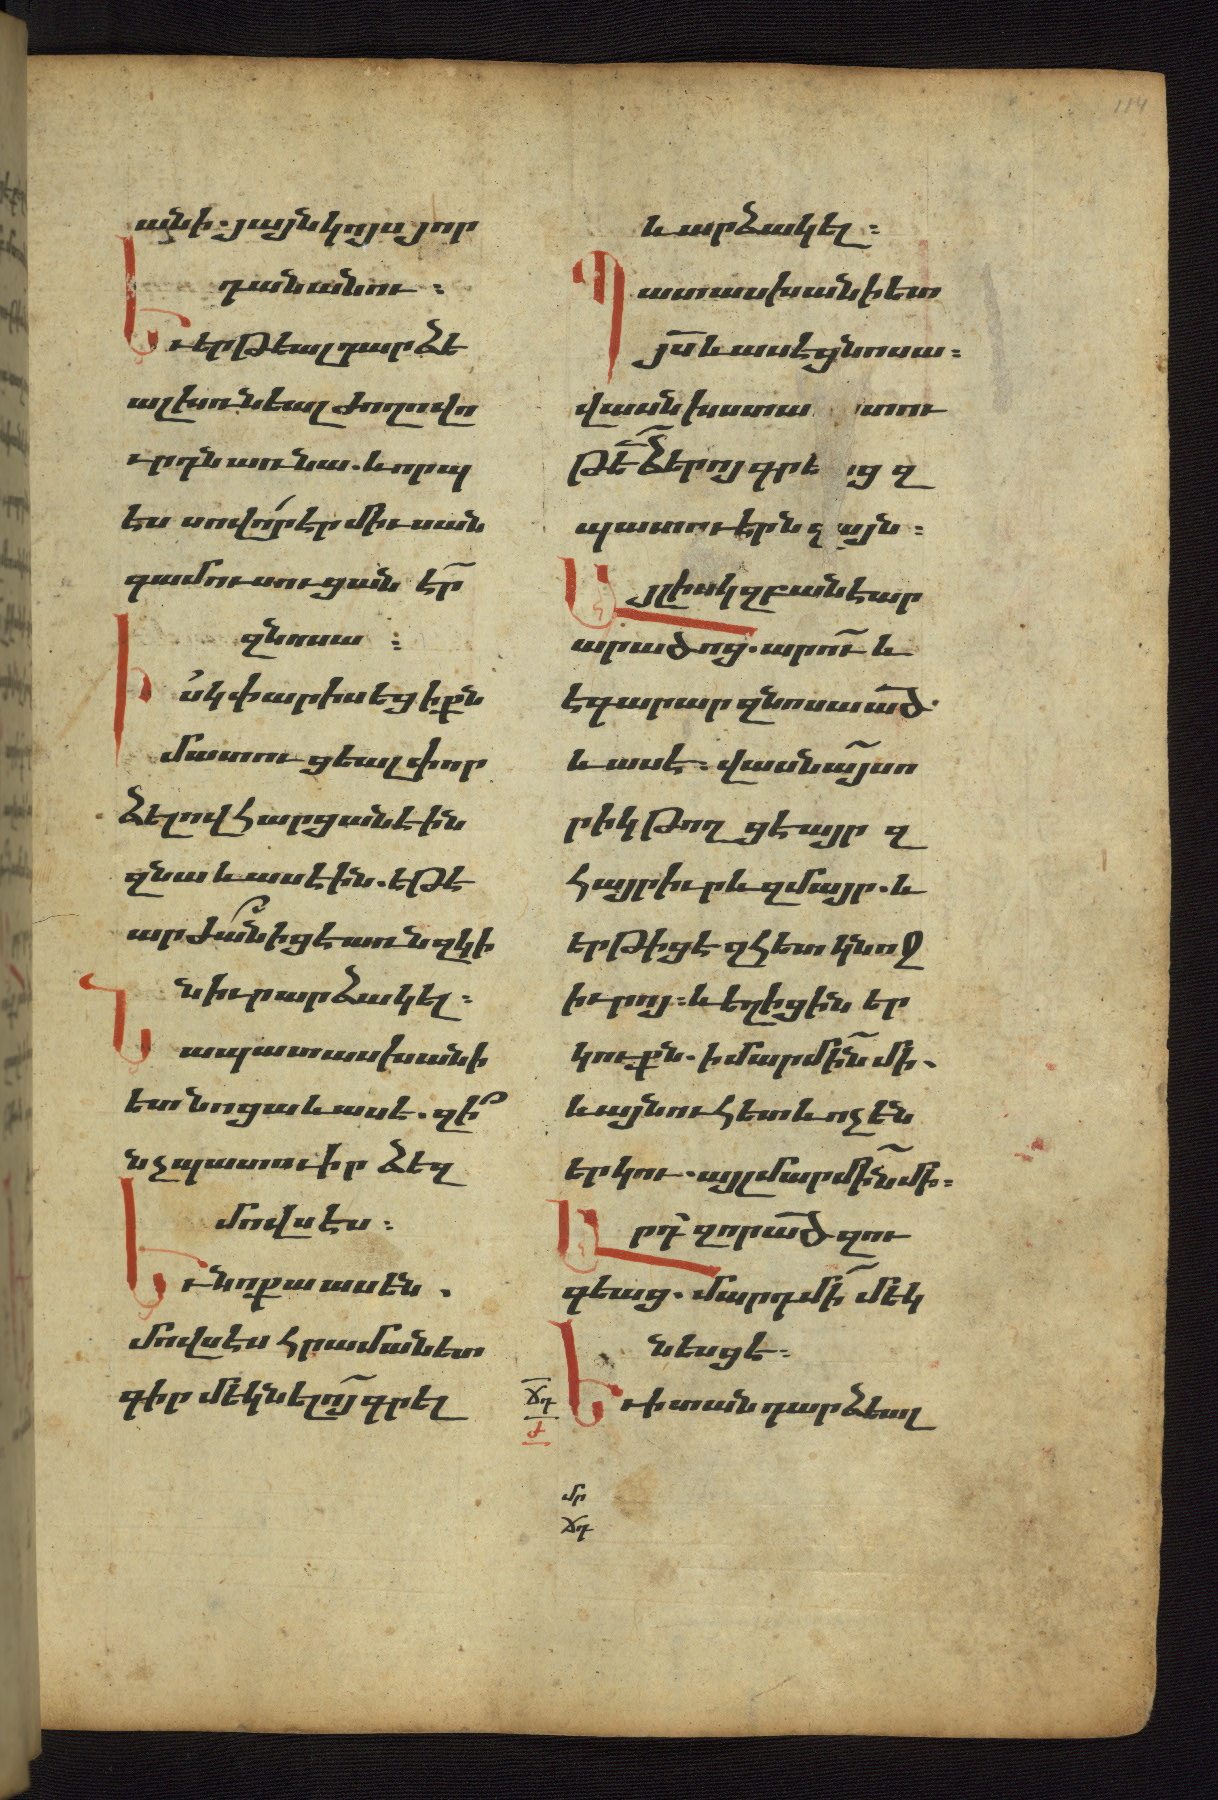 114
անի. յայնկոյս յոր
դանանու :
Եւ երթեալ դարձե
ալ խռնեալ ժողովո
ւրդն առ նա. և որպ
ես սովոր էր միւսան
գամ ուսուցան էր
զնոսա :
Իսկ փարիսեցիքն
մատուցեալ փոր
ձելով հարցանէին
զնա և ասէին. եթէ
արժան իցէ առն զկի
ն իւր արձակել :
Նա պատասխանի
ետ նոցա և ասէ. զի՞
նչ պատուիր ձեզ
մովսէս :
Եւ նոքա ասեն .
մովսէս հրամանետ
գիր մեկնելոյ գրել
և արձակել :
Պատասխանի ետ
յս և ասէ ցնոսա :
վասն խստա տու
թե ձերոյ գրե ց զ
պատուերն զ այն :
Այլ ի սկզբանէ ար
արածոց. արու և
էգ արար զնոսա ած.
և ասէ. վասն այսո
րիկ թողցէ այր զ
հայր իւր և զմայր. և
երթիցէ զհետ կնոջ
իւրոյ : և եղիցին եր
կուքն. ի մարմին մի.
և այնուհետև ոչ են
երկու. այլ մարմին մի :
Արդ զոր ած զու
գեաց. մարդ մի մեկ
նեսցե :
Եւ ի տան դարձեալ
ճդ
ժ
մր
ճդ